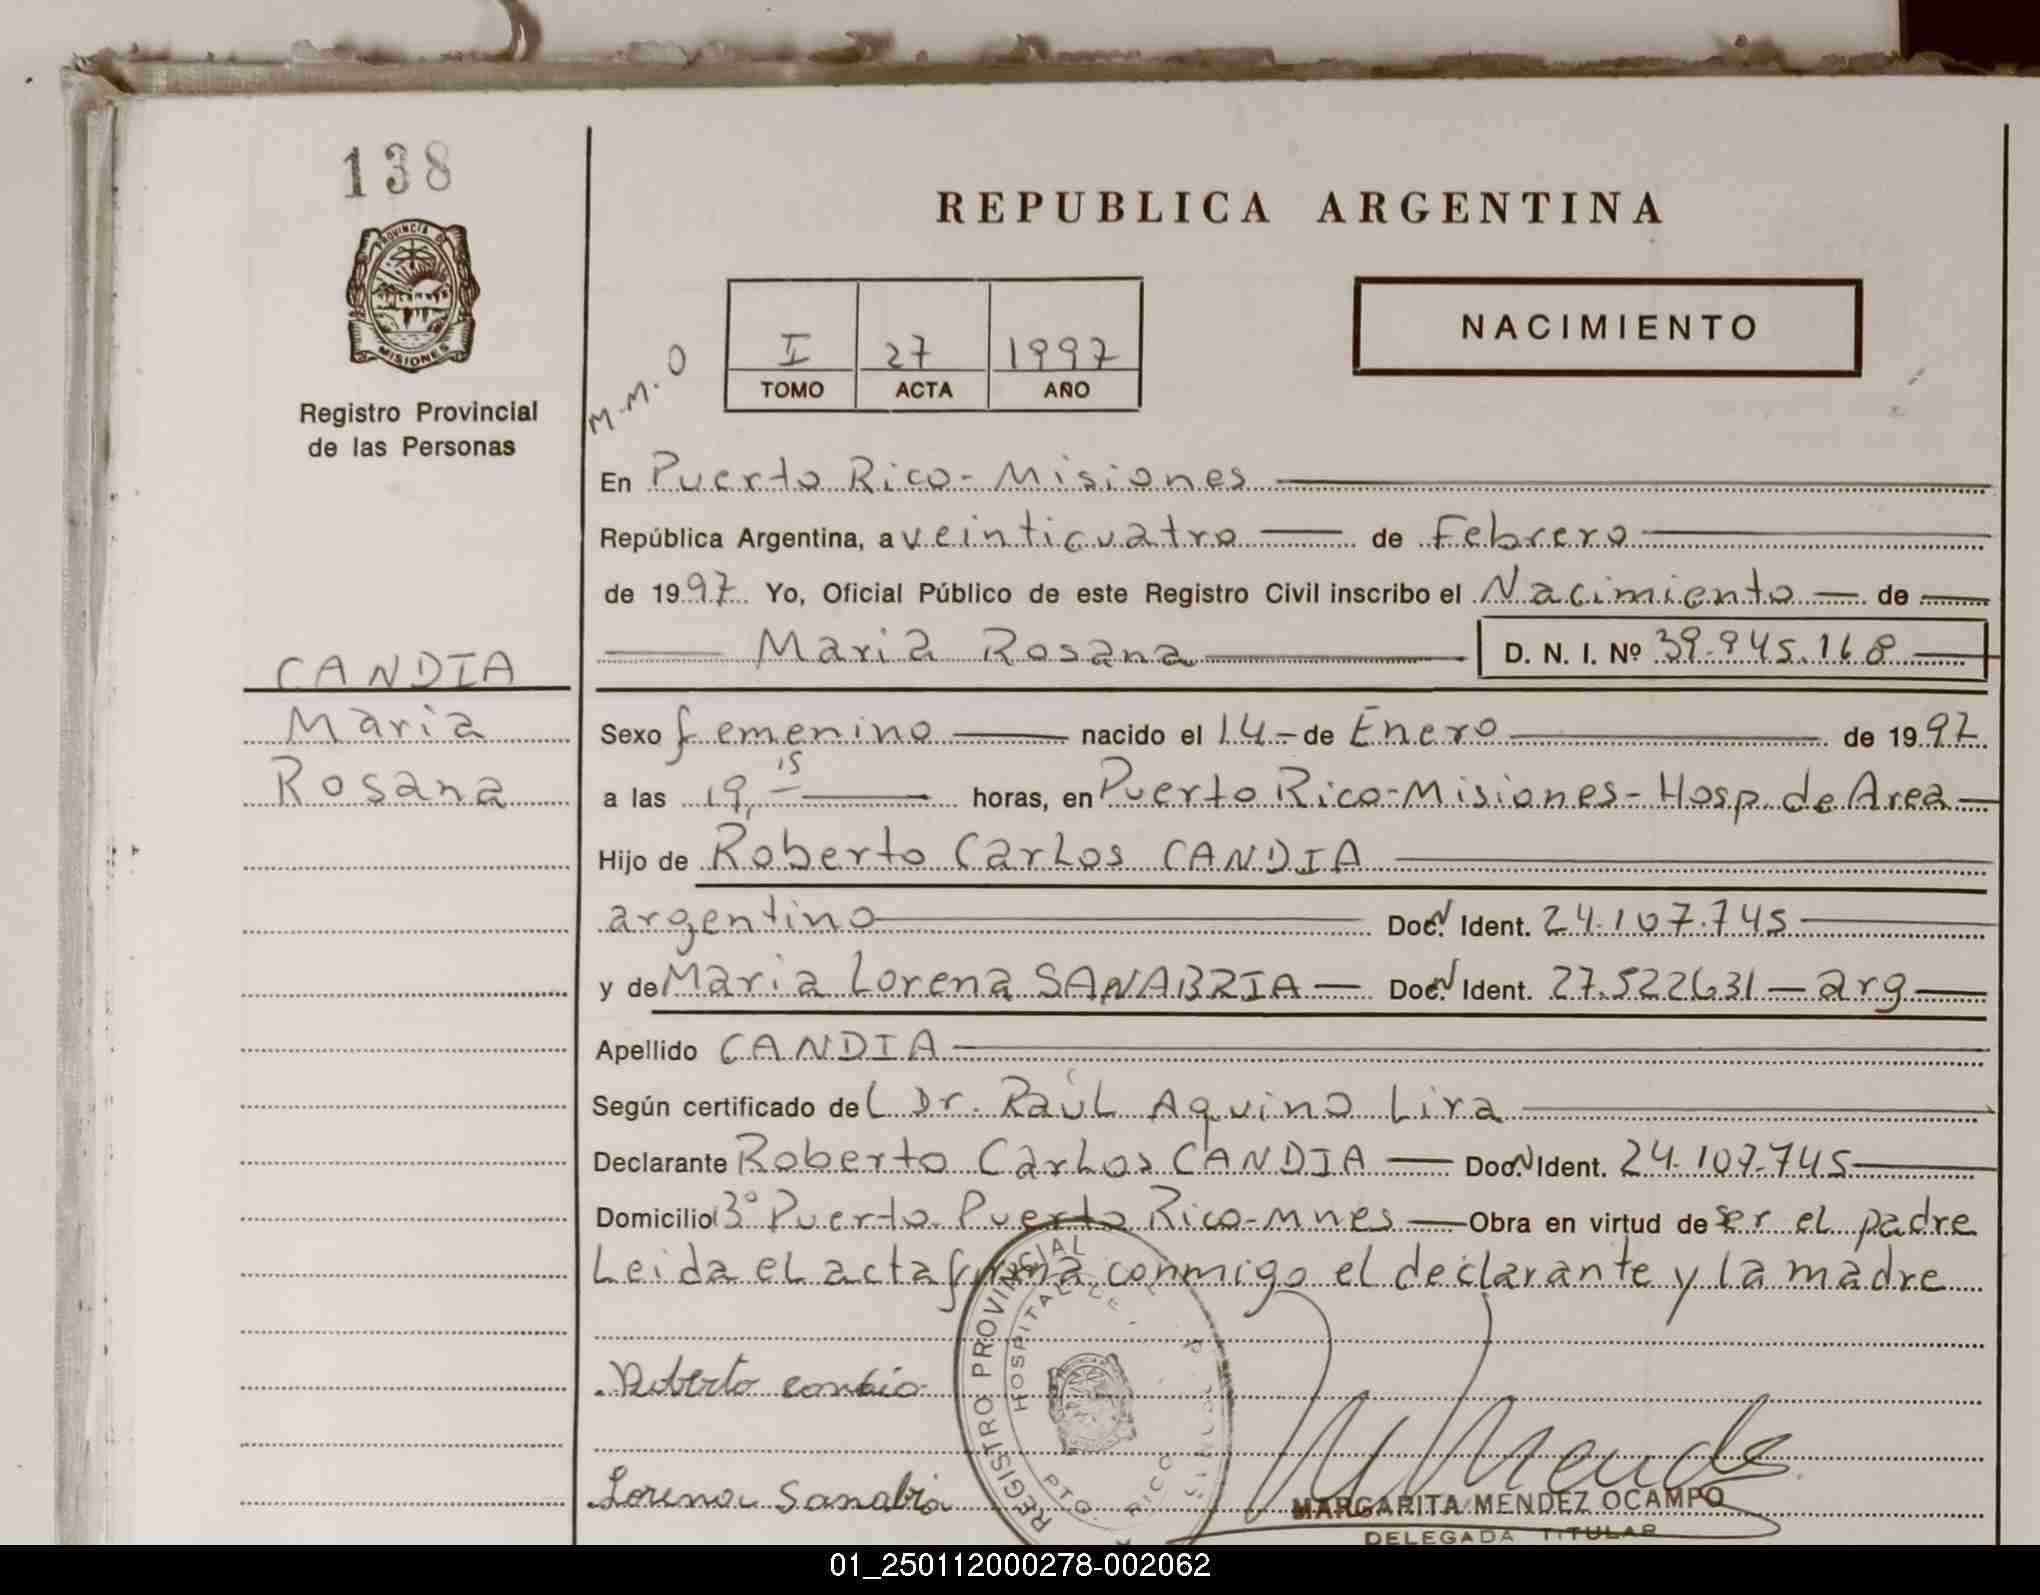 138
PROVINCIA DE
MISIONES
Registro Provincial
de las Personas
CANDIA
Maria
Rosana
REPUBLICA ARGENTINA
I 27 1997
TOMO ACTA AÑO
NACIMIENTO
M.M.O
En Puerto Rico - Misiones
República Argentina, a veinticuatro de Febrero
de 1997. Yo, Oficial Público de este Registro Civil inscribo el Nacimiento de
Maria Rosana D. N. I. Nº 39.945.168
Sexo femenino nacido el 14 - de Enero de 1997
a las 19,15 horas, en Puerto Rico - Misiones - Hosp. de Area
Hijo de Roberto Carlos CANDIA
argentino Doc. N Ident. 24.107.745
y de Maria Lorena SANABRIA Doc. N Ident. 27.522631 - arg
Apellido CANDIA
Según certificado del Dr. Raúl Aquino Lira
Declarante Roberto Carlos CANDIA Doc. N Ident. 24.107.745
Domicilio 3º Puerto. Puerto Rico - Mnes Obra en virtud de ser el padre
Leida el acta firma conmigo el declarante y la madre
Roberto candia
Lorena Sanabria
REGISTRO PROVINCIAL
HOSPITAL DE
PTO. RICO
MARGARITA MENDEZ OCAMPO
DELEGADA TITULAR
01_250112000278-002062